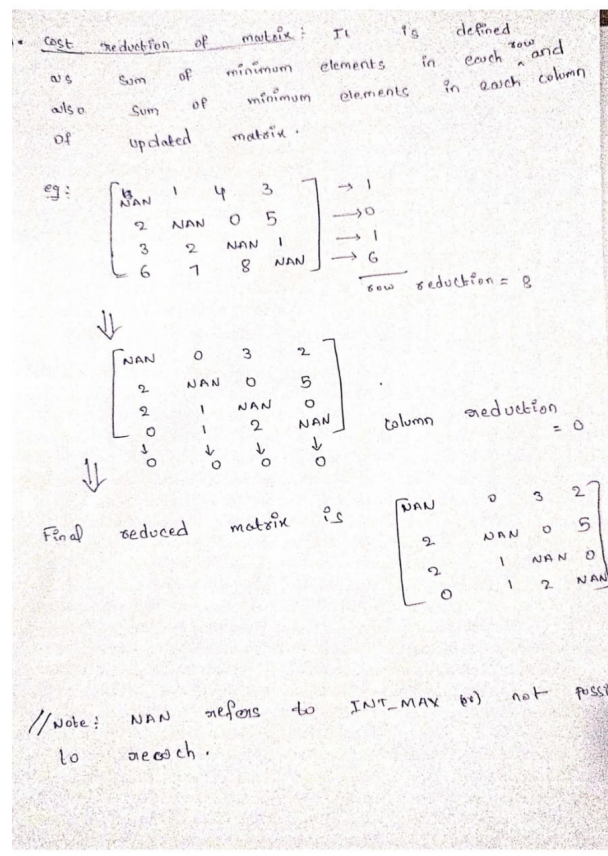 • Cost reduction of matrix : It is defined
as sum of minimum elements in each row and
also sum of minimum elements in each column
of updated matrix.
eg :
NAN 1 4 3 → 1
2 NAN 0 5 → 0
3 2 NAN 1 → 1
6 7 8 NAN → 6
row reduction = 8
⇓
NAN 0 3 2
2 NAN 0 5
2 1 NAN 0
0 1 2 NAN
↓ ↓ ↓ ↓
0 0 0 0
column reduction
= 0
⇓
Final reduced matrix is
NAN 0 3 2
2 NAN 0 5
2 1 NAN 0
0 1 2 NAN
//Note : NAN refers to INT_MAX (or) not
to reach.